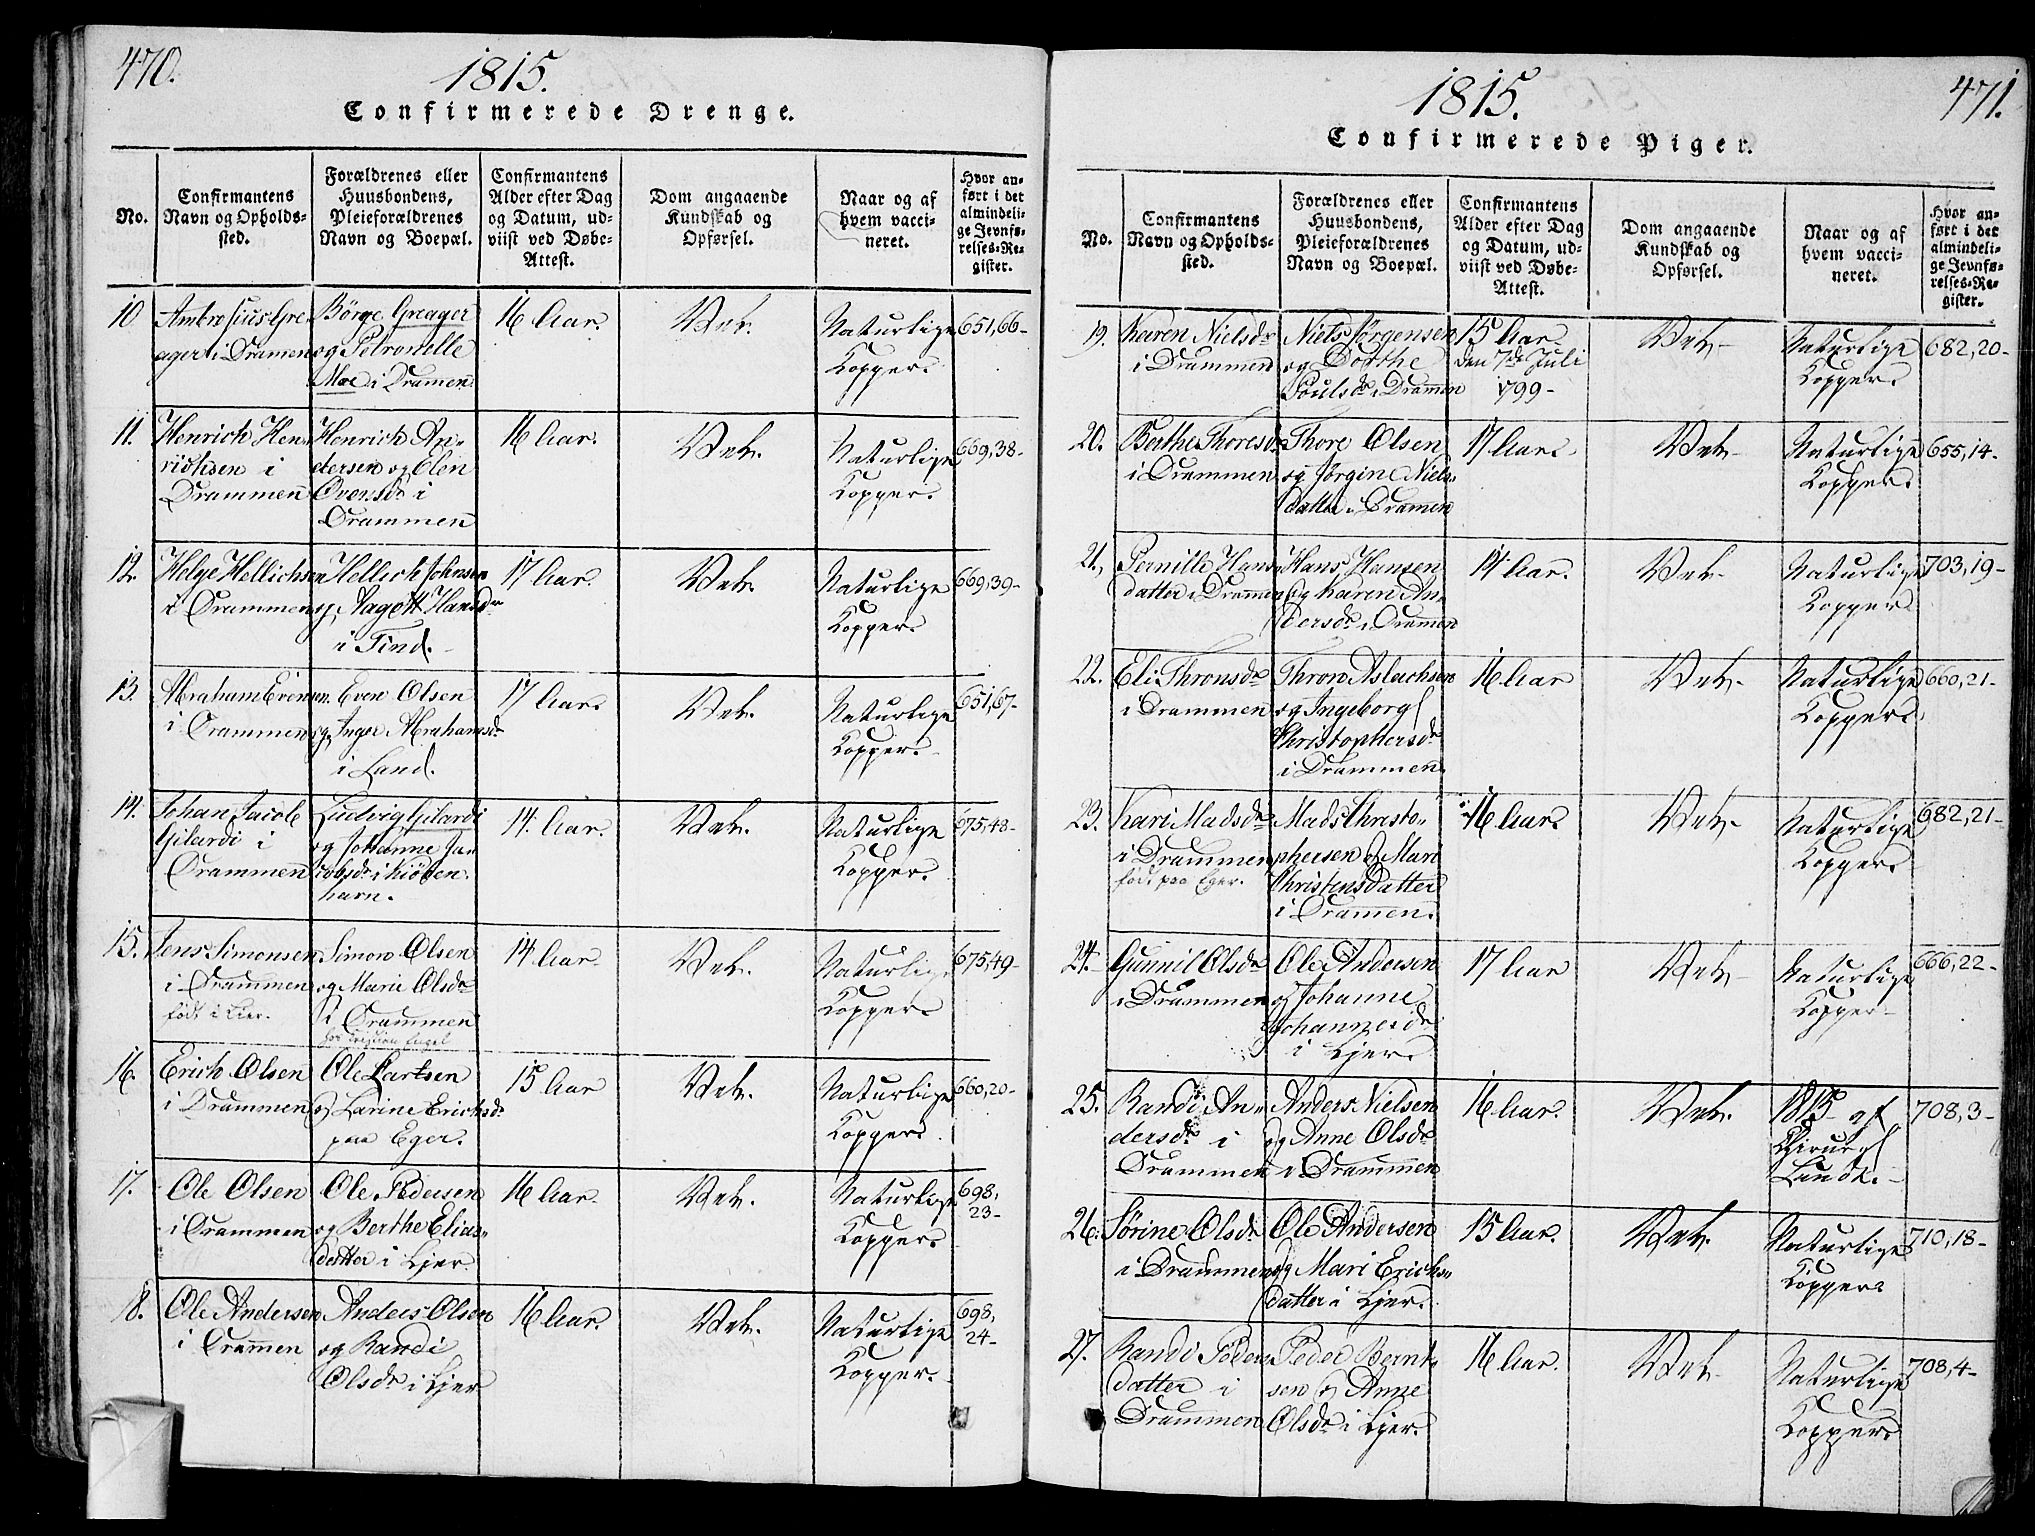 470.
1815.
Confirmerede Drenge.
No.
Confirmantens
Navn og Opholds-
sted.
Forældrenes eller
Huusbondens,
Pleieforældrenes
Navn og Boepæl.
Confirmantens
Alder efter Dag
og Datum, ud-
viist ved Døbe-
Attest.
Dom angaaende
Kundskab og
Opførsel.
Naar og af
hvem vacci-
neret.
Hvor an-
ført i det
almindeli-
ge Jevnfø-
relses-Re-
gister.
10
Ambrosius Gre-
ager i Dramen
Börge Greager
og Petronelle
Moe i Dramen.
16 Aar.
Vel.
Naturlige
Kopper.
651,66-
11.
Henrich Hen-
richsen i
Drammen
Henrich An-
dersen og Elen
Evensdr i
Drammen
16 Aar.
Vel.
Naturlige
Kopper.
669,38-
12.
Helge Hellichsen
i Drammen
Hellich Johnsen
og Aagott Hansdr
i Tind.
17 Aar.
Vel.
Naturlige
Kopper.
669,39-
13.
Abraham Evensen
i Drammen
Even Olsen
og Inger Abrahamsdr
i Land.
17 Aar.
Vel.
Naturlige
Kopper.
651,67-
14.
Johan Jacob
Gilardi i
Drammen
Ludvig Gilardi
og Johanne Ja-
cobsdr i Kiöben-
havn.
14. Aar.
Vel.
Naturlige
Kopper.
675,48-
15.
Jens Simonsen
i Drammen
født i Lier.
Simon Olsen
og Marie Olsdr
i Drammen
hos Cristian Engel
14 Aar.
Vel.
Naturlige
Kopper.
675,49-
16.
Erich Olsen
i Drammen
Ole Larsen
og Larine Erichsdr
paa Eger.
15 Aar
Vel.
Naturlige
Kopper.
660,20-
17.
Ole Olsen
i Drammen
Ole Pedersen
og Berthe Elias-
datter i Lier.
16 Aar.
Vel.
Naturlige
Kopper.
698,
23-
18.
Ole Andersen
i Drammen
Anders Olsen
og Randi
Olsdr i Lier
16 Aar.
Vel.
Naturlige
Kopper.
698,
24-
471.
1815.
Confirmerede Piger.
No.
Confirmantens
Navn og Opholds-
sted.
Forældrenes eller
Huusbondens,
Pleieforældrenes
Navn og Boepæl.
Confirmantens
Alder efter Dag
og Datum, ud-
viist ved Døbe-
Attest.
Dom angaaende
Kundskab og
Opførsel.
Naar og af
hvem vacci-
neret.
Hvor an-
ført i det
almindeli-
ge Jevnfø-
relses-Re-
gister.
19.
Karen Nielsdr
i Drammen
Niels Jörgensen
og Dorthe
Poulsdr i Dramen
15 Aar.
den 7de Juli
1799-
Vel-
Naturlige
Kopper.
682,20-
20.
Berthe Thoresdr
i Drammen
Thore Olsen
og Jörgine Niels-
datter i Dramen
17 Aar.
Vel-
Naturlige
Kopper.
655,14-
21.
Pernille Hans-
datter i Dramen
Hans Hansen
og Karen An-
dersdr i Dramen
14 Aar.
Vel.
Naturlige
Kopper.
703,19-
22.
Eli Thronsdr
i Drammen
Thron Aslachsen
og Ingeborg
Christophersdr
i Drammen.
16 Aar
Vel-
Naturlige
Kopper.
660,21-
23.
Kari Madsdr
i Drammen
født paa Eger.
Mads Christo-
phersen og Mari
Christensdatter
i Dramen.
16 Aar.
Vel-
Naturlige
Kopper.
682,21-
24.
Gunnil Olsdr
i Drammen
Ole Andersen
og Johanne
Johannesdr
i Ljer.
17 Aar
Vel-
Naturlige
Kopper-
666,22-
25.
Randi An-
dersdr i
Drammen
Anders Nielsen
og Anne Olsdr
i Drammen
16 Aar.
Vel.
1815 af
Chirurg
Lund.-
708,3-
26.
Sörine Olsdr
i Drammen
Ole Andersen
og Mari Erichs-
datter i Ljer.
15 Aar.
Vel.
Naturlige
Kopper
710,18-
27.
Randi Peders-
datter i
Drammen
Peder Bernt-
sen og Anne
Olsdr i Ljer.
16 Aar.
Vel.
Naturlige
Kopper.
708,4-